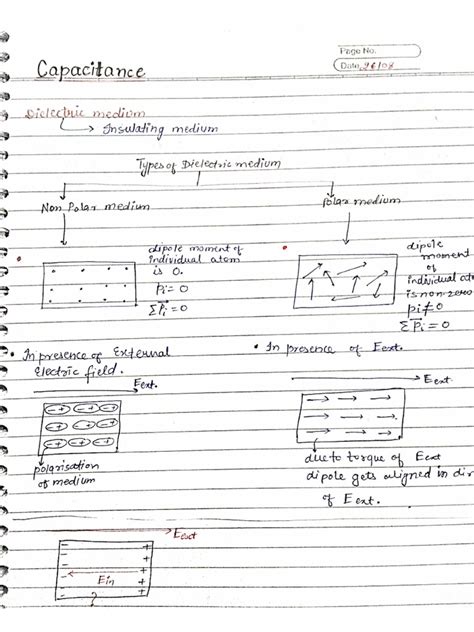 Page No.
Date 26/08
Capacitance
Dielectric medium
→ Insulating medium
Types of Dielectric medium
Non Polar medium
Polar medium
dipole moment of
individual atom
is 0.
Pi = 0
ΣP⃗i = 0
dipole
moment
of
individual at
is non-zero
pi ≠ 0
ΣP⃗i = 0
• In presence of External
Electric field.
Eext.
- + - + - +
- + - + - +
- + - + - +
polarisation
of medium
• In presence of Eext.
Eext
due to torque of Eext
dipole gets aligned in dir
of Eext.
Eext
Ein